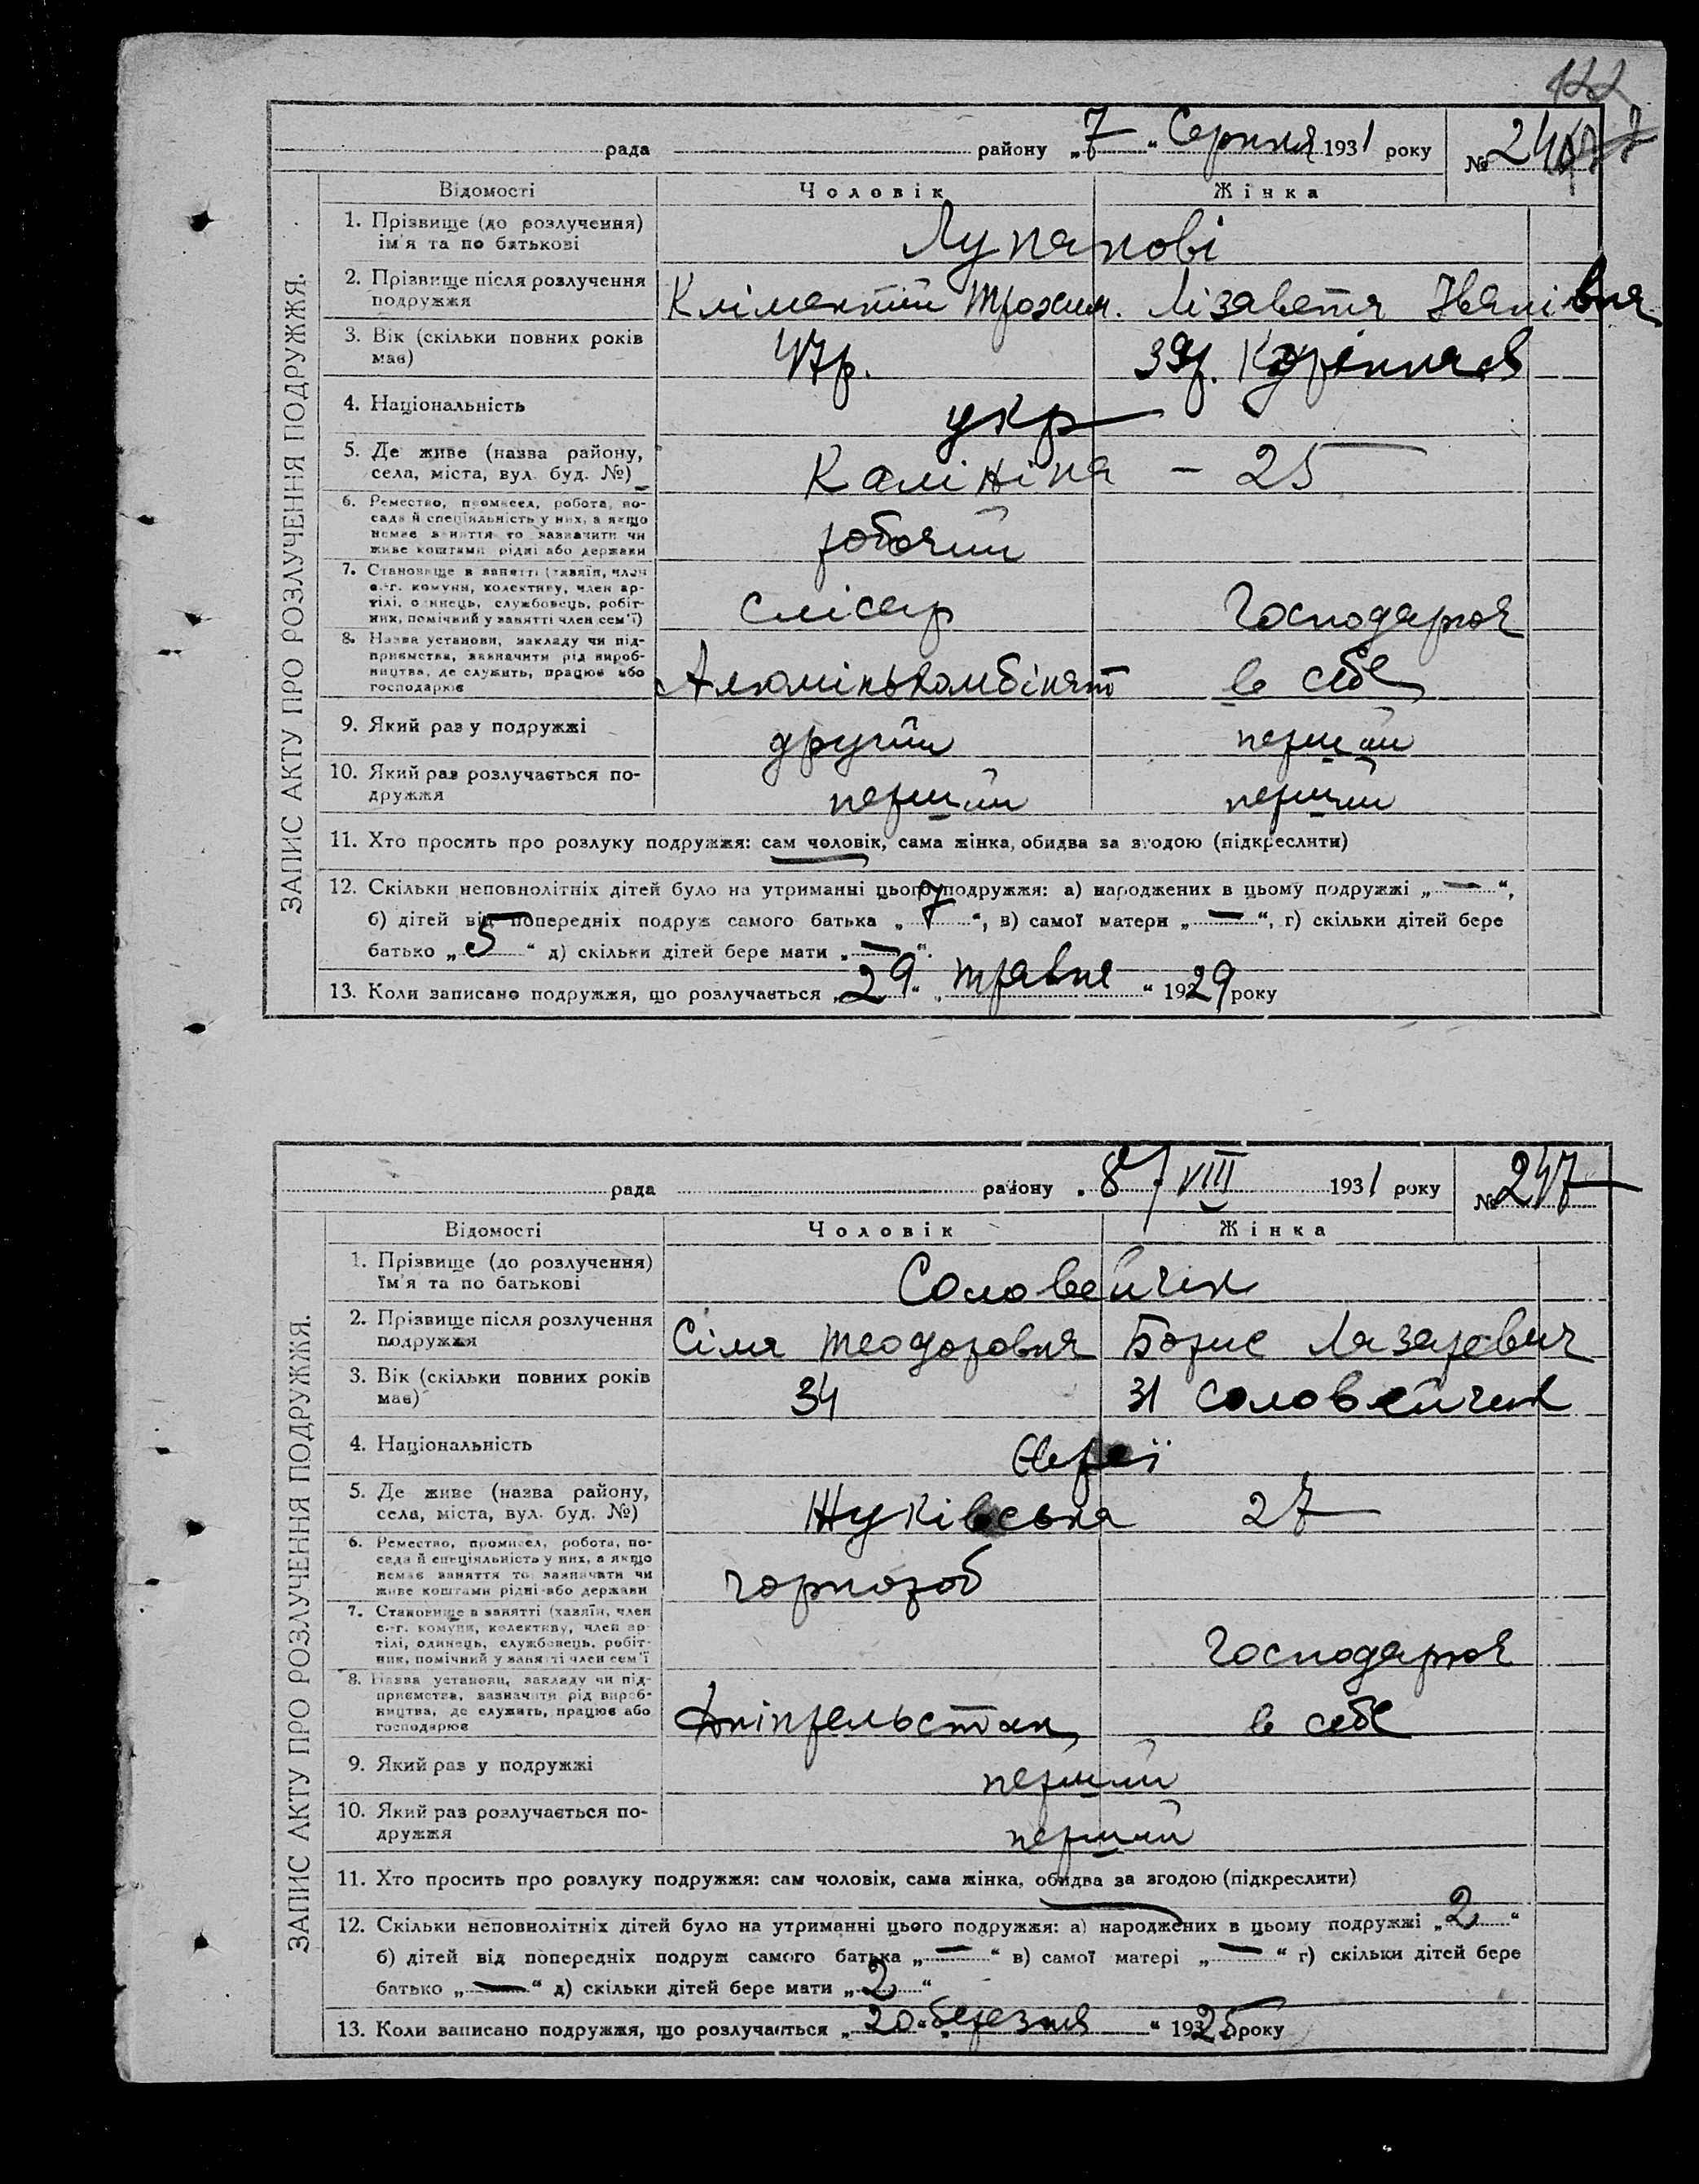 122
рада району „7“ Серпня 1931 року № 246
Відомості Чоловік Жінка
ЗАПИС АКТУ ПРО РОЗЛУЧЕННЯ ПОДРУЖЖЯ.
1. Прізвище (до розлучення)
ім'я та по батькові
2. Прізвище після розлучення
подружжя
Кліментій Трохим. Лізавета Іванівна
3. Вік (скільки повних років
має)
47р. 39р.
4. Національність
укр
5. Де живе (назва району,
села, міста, вул. буд. №)
Калініна — 25
6. Ремество, промисел, робота, по-
сада й спеціяльність у них, а якщо
немає заняття то зазначити чи
живе коштами рідні або держави
робочий
7. Становище в занятті (хазяїн, член
с.-г. комуни, колективу, член ар-
тілі, одинець, службовець, робіт-
ник, помічний у занятті член сем'ї)
слісар Господарює
8. Назва установи, закладу чи під-
приємства, зазначити рід вироб-
ництва, де служить, працює або
господарює
Алюміньхомбінат в себе
9. Який раз у подружжі
другий перший
10. Який раз розлучається по-
дружжя
перший перший
11. Хто просить про розлуку подружжя: сам чоловік, сама жінка, обидва за згодою (підкреслити)
12. Скільки неповнолітніх дітей було на утриманні цього подружжя: а) народжених в цьому подружжі „—“,
б) дітей від попередніх подруж самого батька „7“, в) самої матери „—“, г) скільки дітей бере
батько „5“ д) скільки дітей бере мати „—“.
13. Коли записано подружжя, що розлучається „29“ „травня“ 1929 року
рада району „8/VIII 1931 року № 247
Відомості Чоловік Жінка
ЗАПИС АКТУ ПРО РОЗЛУЧЕННЯ ПОДРУЖЖЯ.
1. Прізвище (до розлучення)
ім'я та по батькові
Соловейчик
2. Прізвище після розлучення
подружжя
Сіма Теодоровна Борис Лазаревич
3. Вік (скільки повних років
має)
34 31 Соловейчик
4. Національність
Євреї
5. Де живе (назва району,
села, міста, вул. буд. №)
Жуківська 27
6. Ремество, промисел, робота, по-
сада й спеціяльність у них, а якщо
немає заняття то зазначити чи
живе коштами рідні або держави
чорнороб
7. Становище в занятті (хазяїн, член
с.-г. комуни, колективу, член ар-
тілі, одинець, службовець, робіт-
ник, помічний у занятті член сем'ї
Господарює
8. Назва установи, закладу чи під-
приємства, зазначити рід вироб-
ництва, де служить, працює або
господарює
Дніпрельстан в себе
9. Який раз у подружжі
перший
10. Який раз розлучається по-
дружжя
перший
11. Хто просить про розлуку подружжя: сам чоловік, сама жінка, обидва за згодою (підкреслити)
12. Скільки неповнолітніх дітей було на утриманні цього подружжя: а) народжених в цьому подружжі „2“
б) дітей від попередніх подруж самого батька „—“ в) самої матері „—“ г) скільки дітей бере
батько „—“ д) скільки дітей бере мати „2“
13. Коли записано подружжя, що розлучається „20“ „березня“ 1925 року